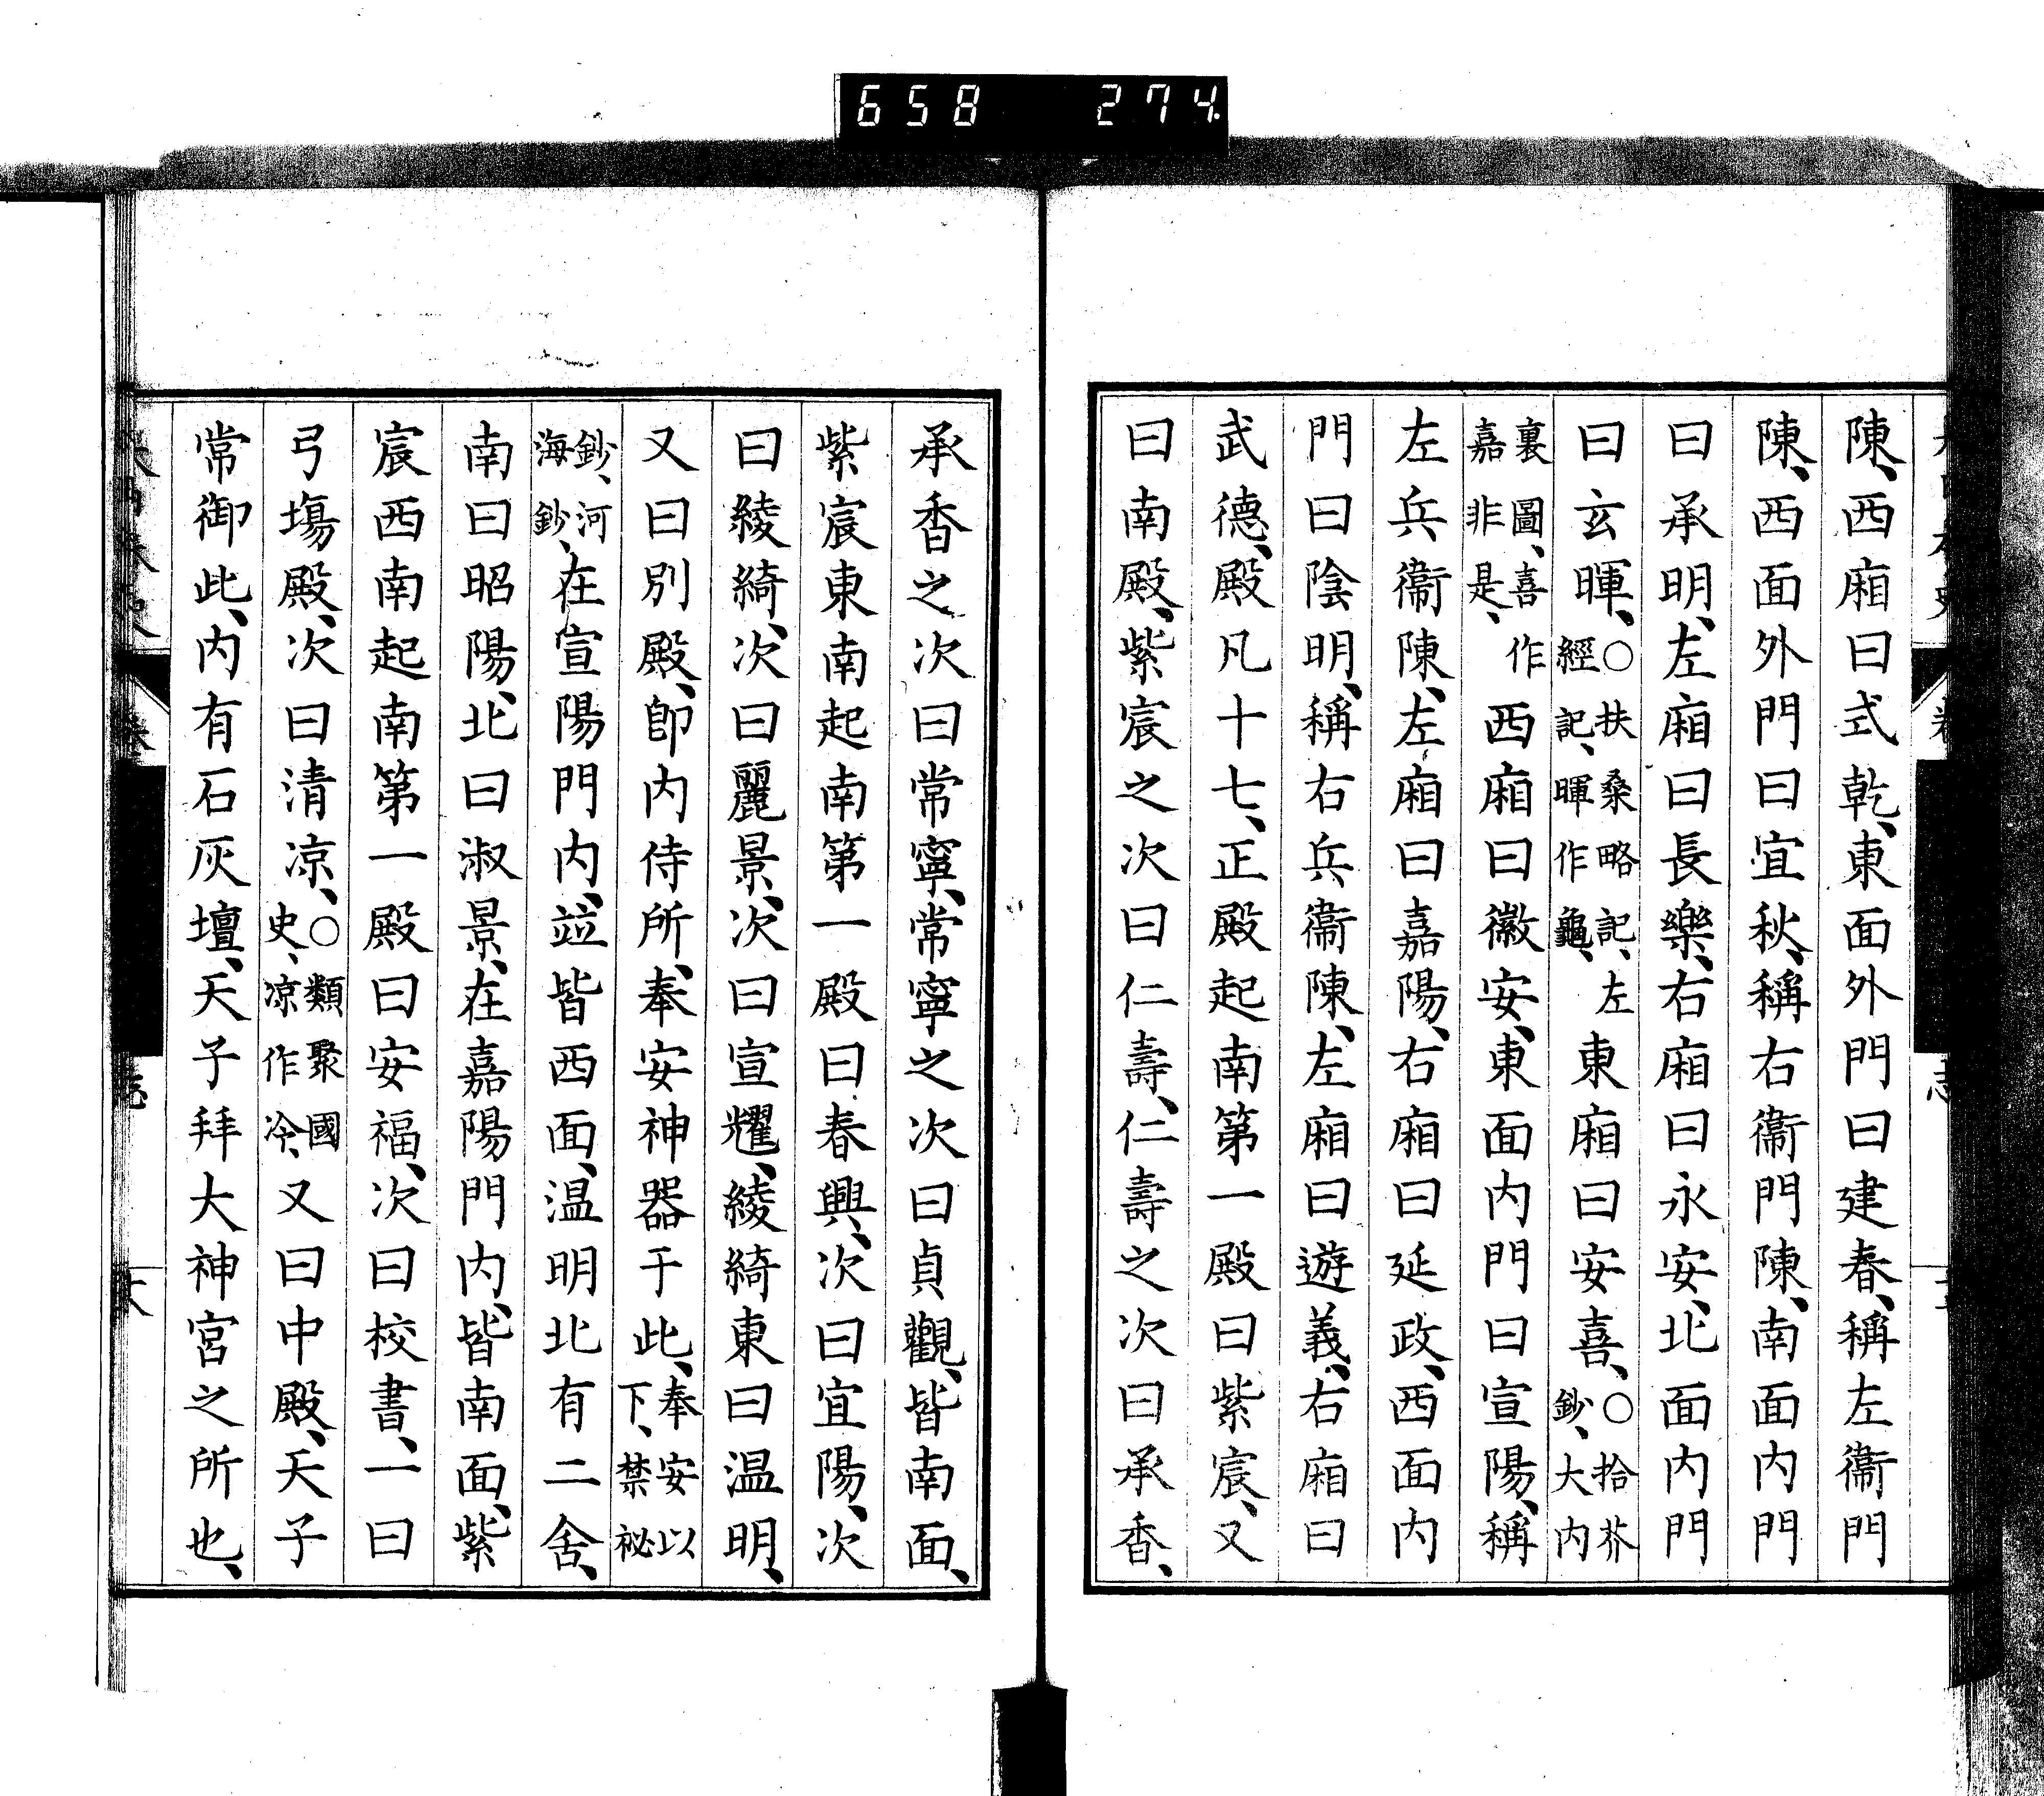 658 274
陳、西廂曰式乾、東面外門曰建春、稱左衞門
陳、西面外門曰宜秋、稱右衞門陳、南面内門
曰承明、左廂曰長樂、右廂曰永安、北面内門
曰玄暉、○扶桑略記、左經記、暉作龜、東廂曰安喜、○拾芥鈔、大内
裏圖、喜作嘉非是、西廂曰徽安、東面内門曰宣陽、稱
左兵衞陳、左廂曰嘉陽、右廂曰延政、西面内
門曰陰明、稱右兵衞陳、左廂曰遊義、右廂曰
武德、殿凡十七、正殿起南第一殿曰紫宸、又
曰南殿、紫宸之次曰仁壽、仁壽之次曰承香、
承香之次曰常寧、常寧之次曰貞觀、皆南面、
紫宸東南起南第一殿曰春興、次曰宜陽、次
曰綾綺、次曰麗景、次曰宣耀、綾綺東曰温明、
又曰別殿、卽内侍所、奉安神器于此、奉安以下、禁祕
鈔、河海鈔、在宣陽門内、竝皆西面、温明北有二舍、
南曰昭陽、北曰淑景、在嘉陽門内、皆南面、紫
宸西南起南第一殿曰安福、次曰校書、一曰
弓塲殿、次曰清凉、○類聚國史、凉作冷、又曰中殿、天子
常御此、内有石灰壇、天子拜大神宮之所也、